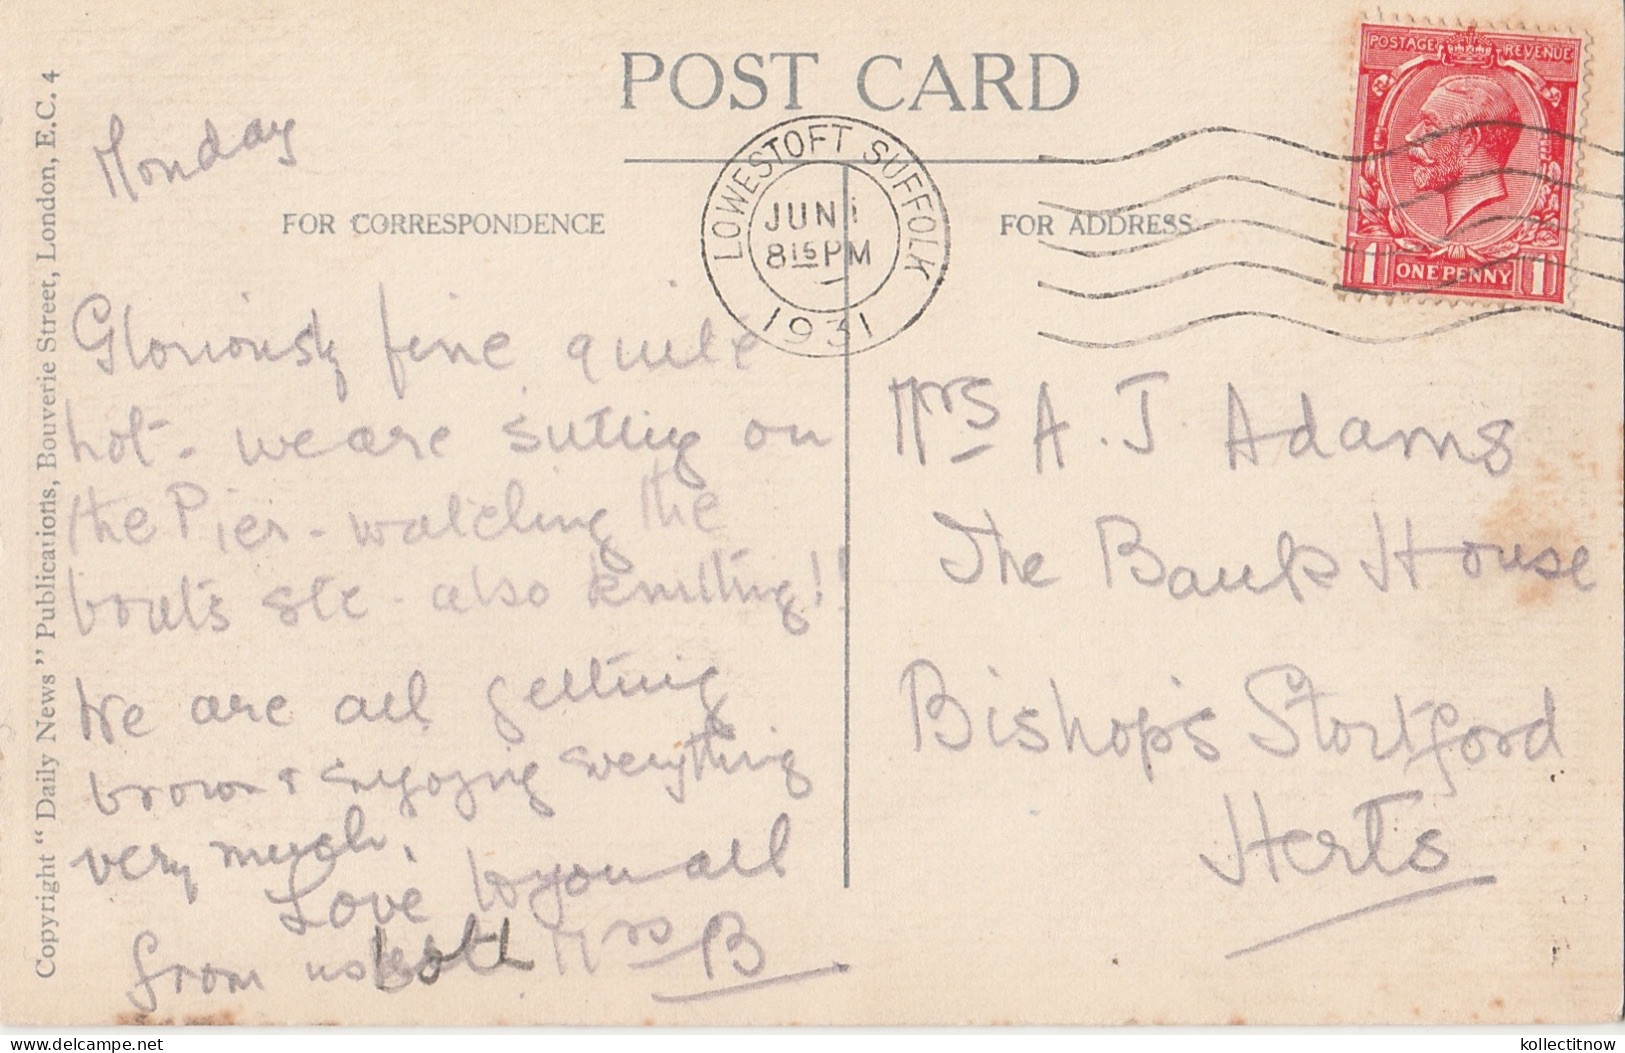 POST CARD
FOR CORRESPONDENCE
FOR ADDRESS
Copyright "Daily News" Publications, Bouverie Street, London, E.C. 4
LOWESTOFT SUFFOLK
JUN 1
8 15 PM
1931
POSTAGE REVENUE
1 ONE PENNY 1
Monday
Gloriously fine quite
hot - we are sitting on
the Pier - watching the
boats etc - also knitting!!
We are all getting
brown & enjoying everything
very much.
Love to you all
from us both Mrs B
Mrs A. J. Adams
The Bank House
Bishop's Stortford
Herts
kollectitnow